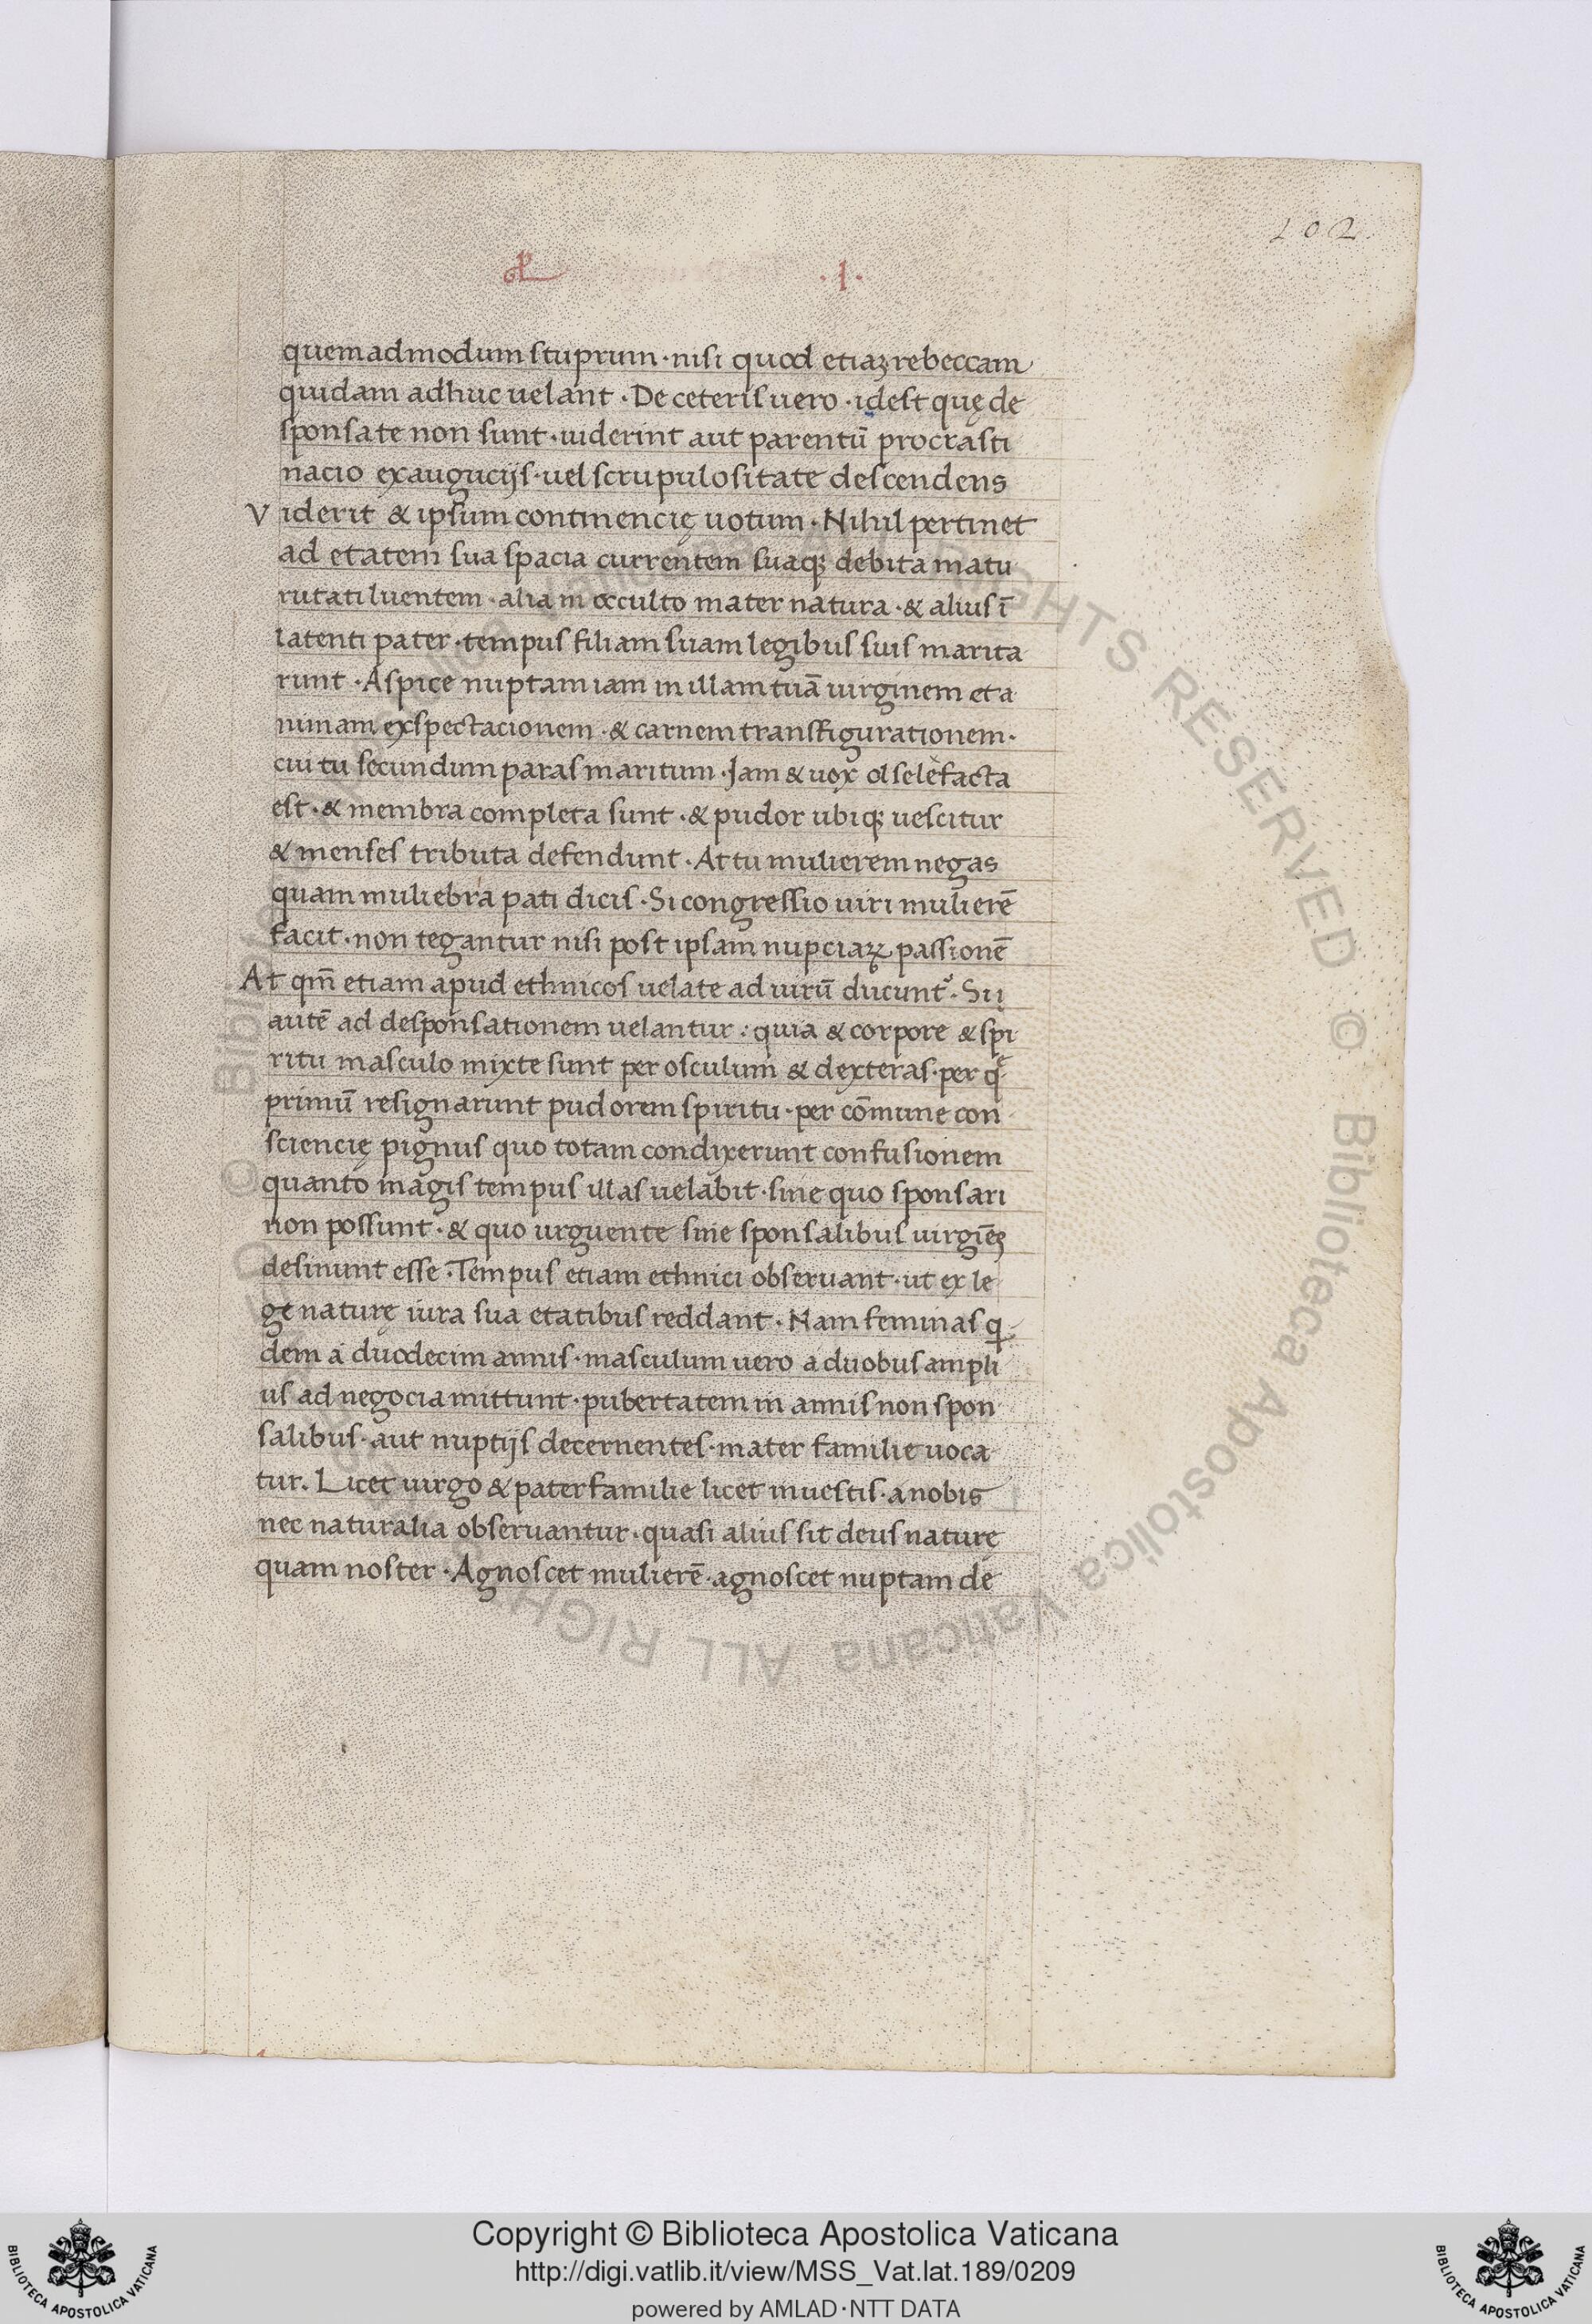 102
.I.
quemadmodum stuprum · nisi quod etiaꝫ rebeccam
quidam adhuc uelant · De ceteris uero · idest quę de
sponsate non sunt · uiderint aut parentū procrasti
nacio ex augucijs · uel scrupulositate descendens
Viderit & ipsum continencię uotum · Nihil pertinet
ad etatem sua spacia currentem suaqꝫ debita matu
rutati luentem · alia in occulto mater natura · & alius ī
latenti pater · tempus filiam suam legibus suis marita
runt · Aspice nuptam iam in illam tuā uirginem et a
nimam exspectacionem · & carnem transfigurationem ·
cui tu secundum paras maritum · Jam & uox olselefacta
est · & membra completa sunt · & pudor ubiqꝫ uescitur
& menses tributa defendunt · At tu mulierem negas
quam muliebria pati dicis · Si congressio uiri mulierē
facit · non tegantur nisi post ipsam nupciaꝝ passionē
At qm̄ etiam apud ethnicos uelate ad uirū ducunt᷑ · Sii
autē ad desponsationem uelantur : quia & corpore & spi
ritu masculo mixte sunt per osculum & dexteras · per q̄
primū resignarunt pudorem spiritu · per cōmune con
sciencię pignus quo totam condixerunt confusionem
quanto magis tempus illas uelabit · sine quo sponsari
non possunt · & quo urguente sine sponsalibus uirgīes
desinunt esse · Tempus etiam ethnici obseruant · ut ex le
ge naturę iura sua etatibus reddant · Nam feminas qi
dem a duodecim annis · masculum uero a duobus ampli
us ad negocia mittunt · pubertatem in annis non spon
salibus · aut nuptijs decernentes · mater familie uoca
tur. Licet uirgo & pater familie licet inuestis · a nobis
nec naturalia obseruantur · quasi alius sit deus naturę
quam noster · Agnoscet mulierē · agnoscet nuptam de
© Biblioteca Apostolica Vaticana ALL RIGHTS RESERVED © Biblioteca Apostolica Vaticana ALL RIGHTS RESERVED
Copyright © Biblioteca Apostolica Vaticana
http://digi.vatlib.it/view/MSS_Vat.lat.189/0209
powered by AMLAD·NTT DATA
BIBLIOTECA APOSTOLICA VATICANA
BIBLIOTECA APOSTOLICA VATICANA